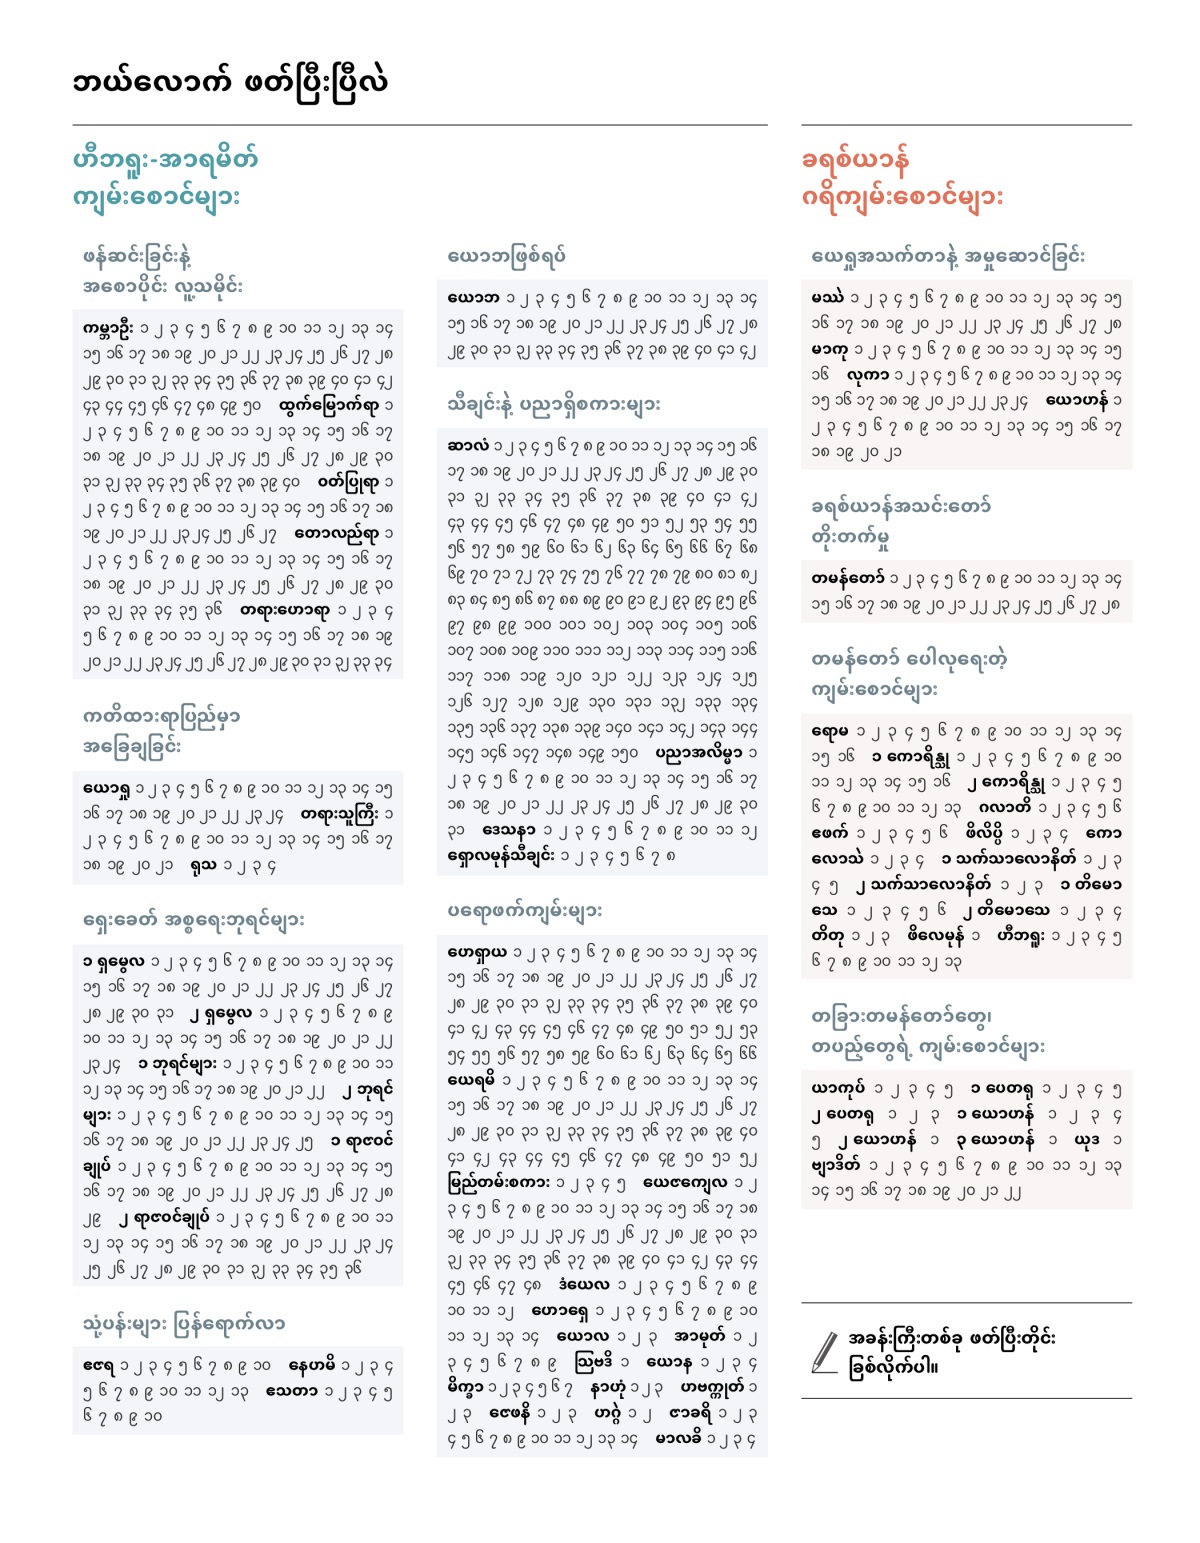 ဘယ်လောက် ဖတ်ပြီးပြီလဲ
ဟီဘရူး-အာရမိတ်
ကျမ်းစောင်များ
ဖန်ဆင်းခြင်းနဲ့
အစောပိုင်း လူ့သမိုင်း
ကမ္ဘာဦး ၁ ၂ ၃ ၄ ၅ ၆ ၇ ၈ ၉ ၁၀ ၁၁ ၁၂ ၁၃ ၁၄
၁၅ ၁၆ ၁၇ ၁၈ ၁၉ ၂၀ ၂၁ ၂၂ ၂၃ ၂၄ ၂၅ ၂၆ ၂၇ ၂၈
၂၉ ၃၀ ၃၁ ၃၂ ၃၃ ၃၄ ၃၅ ၃၆ ၃၇ ၃၈ ၃၉ ၄၀ ၄၁ ၄၂
၄၃ ၄၄ ၄၅ ၄၆ ၄၇ ၄၈ ၄၉ ၅၀ ထွက်မြောက်ရာ ၁
၂ ၃ ၄ ၅ ၆ ၇ ၈ ၉ ၁၀ ၁၁ ၁၂ ၁၃ ၁၄ ၁၅ ၁၆ ၁၇
၁၈ ၁၉ ၂၀ ၂၁ ၂၂ ၂၃ ၂၄ ၂၅ ၂၆ ၂၇ ၂၈ ၂၉ ၃၀
၃၁ ၃၂ ၃၃ ၃၄ ၃၅ ၃၆ ၃၇ ၃၈ ၃၉ ၄၀ ဝတ်ပြုရာ ၁
၂ ၃ ၄ ၅ ၆ ၇ ၈ ၉ ၁၀ ၁၁ ၁၂ ၁၃ ၁၄ ၁၅ ၁၆ ၁၇ ၁၈
၁၉ ၂၀ ၂၁ ၂၂ ၂၃ ၂၄ ၂၅ ၂၆ ၂၇ တောလည်ရာ ၁
၂ ၃ ၄ ၅ ၆ ၇ ၈ ၉ ၁၀ ၁၁ ၁၂ ၁၃ ၁၄ ၁၅ ၁၆ ၁၇
၁၈ ၁၉ ၂၀ ၂၁ ၂၂ ၂၃ ၂၄ ၂၅ ၂၆ ၂၇ ၂၈ ၂၉ ၃၀
၃၁ ၃၂ ၃၃ ၃၄ ၃၅ ၃၆ တရားဟောရာ ၁ ၂ ၃ ၄
၅ ၆ ၇ ၈ ၉ ၁၀ ၁၁ ၁၂ ၁၃ ၁၄ ၁၅ ၁၆ ၁၇ ၁၈ ၁၉
၂၀ ၂၁ ၂၂ ၂၃ ၂၄ ၂၅ ၂၆ ၂၇ ၂၈ ၂၉ ၃၀ ၃၁ ၃၂ ၃၃ ၃၄
ကတိထားရာပြည်မှာ
အခြေချခြင်း
ယောရှု ၁ ၂ ၃ ၄ ၅ ၆ ၇ ၈ ၉ ၁၀ ၁၁ ၁၂ ၁၃ ၁၄ ၁၅
၁၆ ၁၇ ၁၈ ၁၉ ၂၀ ၂၁ ၂၂ ၂၃ ၂၄ တရားသူကြီး ၁
၂ ၃ ၄ ၅ ၆ ၇ ၈ ၉ ၁၀ ၁၁ ၁၂ ၁၃ ၁၄ ၁၅ ၁၆ ၁၇
၁၈ ၁၉ ၂၀ ၂၁ ရုသ ၁ ၂ ၃ ၄
ရှေးခေတ် အစ္စရေးဘုရင်များ
၁ ရှမွေလ ၁ ၂ ၃ ၄ ၅ ၆ ၇ ၈ ၉ ၁၀ ၁၁ ၁၂ ၁၃ ၁၄
၁၅ ၁၆ ၁၇ ၁၈ ၁၉ ၂၀ ၂၁ ၂၂ ၂၃ ၂၄ ၂၅ ၂၆ ၂၇
၂၈ ၂၉ ၃၀ ၃၁ ၂ ရှမွေလ ၁ ၂ ၃ ၄ ၅ ၆ ၇ ၈ ၉
၁၀ ၁၁ ၁၂ ၁၃ ၁၄ ၁၅ ၁၆ ၁၇ ၁၈ ၁၉ ၂၀ ၂၁ ၂၂
၂၃ ၂၄ ၁ ဘုရင်များ ၁ ၂ ၃ ၄ ၅ ၆ ၇ ၈ ၉ ၁၀ ၁၁
၁၂ ၁၃ ၁၄ ၁၅ ၁၆ ၁၇ ၁၈ ၁၉ ၂၀ ၂၁ ၂၂ ၂ ဘုရင်
များ ၁ ၂ ၃ ၄ ၅ ၆ ၇ ၈ ၉ ၁၀ ၁၁ ၁၂ ၁၃ ၁၄ ၁၅
၁၆ ၁၇ ၁၈ ၁၉ ၂၀ ၂၁ ၂၂ ၂၃ ၂၄ ၂၅ ၁ ရာဇဝင်
ချုပ် ၁ ၂ ၃ ၄ ၅ ၆ ၇ ၈ ၉ ၁၀ ၁၁ ၁၂ ၁၃ ၁၄ ၁၅
၁၆ ၁၇ ၁၈ ၁၉ ၂၀ ၂၁ ၂၂ ၂၃ ၂၄ ၂၅ ၂၆ ၂၇ ၂၈
၂၉ ၂ ရာဇဝင်ချုပ် ၁ ၂ ၃ ၄ ၅ ၆ ၇ ၈ ၉ ၁၀ ၁၁
၁၂ ၁၃ ၁၄ ၁၅ ၁၆ ၁၇ ၁၈ ၁၉ ၂၀ ၂၁ ၂၂ ၂၃ ၂၄
၂၅ ၂၆ ၂၇ ၂၈ ၂၉ ၃၀ ၃၁ ၃၂ ၃၃ ၃၄ ၃၅ ၃၆
သုံ့ပန်းများ ပြန်ရောက်လာ
ဧဇရ ၁ ၂ ၃ ၄ ၅ ၆ ၇ ၈ ၉ ၁၀ နေဟမိ ၁ ၂ ၃ ၄
၅ ၆ ၇ ၈ ၉ ၁၀ ၁၁ ၁၂ ၁၃ ဧသတာ ၁ ၂ ၃ ၄ ၅
၆ ၇ ၈ ၉ ၁၀
ယောဘဖြစ်ရပ်
ယောဘ ၁ ၂ ၃ ၄ ၅ ၆ ၇ ၈ ၉ ၁၀ ၁၁ ၁၂ ၁၃ ၁၄
၁၅ ၁၆ ၁၇ ၁၈ ၁၉ ၂၀ ၂၁ ၂၂ ၂၃ ၂၄ ၂၅ ၂၆ ၂၇ ၂၈
၂၉ ၃၀ ၃၁ ၃၂ ၃၃ ၃၄ ၃၅ ၃၆ ၃၇ ၃၈ ၃၉ ၄၀ ၄၁ ၄၂
သီချင်းနဲ့ ပညာရှိစကားများ
ဆာလံ ၁ ၂ ၃ ၄ ၅ ၆ ၇ ၈ ၉ ၁၀ ၁၁ ၁၂ ၁၃ ၁၄ ၁၅ ၁၆
၁၇ ၁၈ ၁၉ ၂၀ ၂၁ ၂၂ ၂၃ ၂၄ ၂၅ ၂၆ ၂၇ ၂၈ ၂၉ ၃၀
၃၁ ၃၂ ၃၃ ၃၄ ၃၅ ၃၆ ၃၇ ၃၈ ၃၉ ၄၀ ၄၁ ၄၂
၄၃ ၄၄ ၄၅ ၄၆ ၄၇ ၄၈ ၄၉ ၅၀ ၅၁ ၅၂ ၅၃ ၅၄ ၅၅
၅၆ ၅၇ ၅၈ ၅၉ ၆၀ ၆၁ ၆၂ ၆၃ ၆၄ ၆၅ ၆၆ ၆၇ ၆၈
၆၉ ၇၀ ၇၁ ၇၂ ၇၃ ၇၄ ၇၅ ၇၆ ၇၇ ၇၈ ၇၉ ၈၀ ၈၁ ၈၂
၈၃ ၈၄ ၈၅ ၈၆ ၈၇ ၈၈ ၈၉ ၉၀ ၉၁ ၉၂ ၉၃ ၉၄ ၉၅ ၉၆
၉၇ ၉၈ ၉၉ ၁၀၀ ၁၀၁ ၁၀၂ ၁၀၃ ၁၀၄ ၁၀၅ ၁၀၆
၁၀၇ ၁၀၈ ၁၀၉ ၁၁၀ ၁၁၁ ၁၁၂ ၁၁၃ ၁၁၄ ၁၁၅ ၁၁၆
၁၁၇ ၁၁၈ ၁၁၉ ၁၂၀ ၁၂၁ ၁၂၂ ၁၂၃ ၁၂၄ ၁၂၅
၁၂၆ ၁၂၇ ၁၂၈ ၁၂၉ ၁၃၀ ၁၃၁ ၁၃၂ ၁၃၃ ၁၃၄
၁၃၅ ၁၃၆ ၁၃၇ ၁၃၈ ၁၃၉ ၁၄၀ ၁၄၁ ၁၄၂ ၁၄၃ ၁၄၄
၁၄၅ ၁၄၆ ၁၄၇ ၁၄၈ ၁၄၉ ၁၅၀ ပညာအလိမ္မာ ၁
၂ ၃ ၄ ၅ ၆ ၇ ၈ ၉ ၁၀ ၁၁ ၁၂ ၁၃ ၁၄ ၁၅ ၁၆ ၁၇
၁၈ ၁၉ ၂၀ ၂၁ ၂၂ ၂၃ ၂၄ ၂၅ ၂၆ ၂၇ ၂၈ ၂၉ ၃၀
၃၁ ဒေသနာ ၁ ၂ ၃ ၄ ၅ ၆ ၇ ၈ ၉ ၁၀ ၁၁ ၁၂
ရှောလမုန်သီချင်း ၁ ၂ ၃ ၄ ၅ ၆ ၇ ၈
ပရောဖက်ကျမ်းများ
ဟေရှာယ ၁ ၂ ၃ ၄ ၅ ၆ ၇ ၈ ၉ ၁၀ ၁၁ ၁၂ ၁၃ ၁၄
၁၅ ၁၆ ၁၇ ၁၈ ၁၉ ၂၀ ၂၁ ၂၂ ၂၃ ၂၄ ၂၅ ၂၆ ၂၇
၂၈ ၂၉ ၃၀ ၃၁ ၃၂ ၃၃ ၃၄ ၃၅ ၃၆ ၃၇ ၃၈ ၃၉ ၄၀
၄၁ ၄၂ ၄၃ ၄၄ ၄၅ ၄၆ ၄၇ ၄၈ ၄၉ ၅၀ ၅၁ ၅၂ ၅၃
၅၄ ၅၅ ၅၆ ၅၇ ၅၈ ၅၉ ၆၀ ၆၁ ၆၂ ၆၃ ၆၄ ၆၅ ၆၆
ယေရမိ ၁ ၂ ၃ ၄ ၅ ၆ ၇ ၈ ၉ ၁၀ ၁၁ ၁၂ ၁၃ ၁၄
၁၅ ၁၆ ၁၇ ၁၈ ၁၉ ၂၀ ၂၁ ၂၂ ၂၃ ၂၄ ၂၅ ၂၆ ၂၇
၂၈ ၂၉ ၃၀ ၃၁ ၃၂ ၃၃ ၃၄ ၃၅ ၃၆ ၃၇ ၃၈ ၃၉ ၄၀
၄၁ ၄၂ ၄၃ ၄၄ ၄၅ ၄၆ ၄၇ ၄၈ ၄၉ ၅၀ ၅၁ ၅၂
မြည်တမ်းစကား ၁ ၂ ၃ ၄ ၅ ယေဇကျေလ ၁ ၂
၃ ၄ ၅ ၆ ၇ ၈ ၉ ၁၀ ၁၁ ၁၂ ၁၃ ၁၄ ၁၅ ၁၆ ၁၇ ၁၈
၁၉ ၂၀ ၂၁ ၂၂ ၂၃ ၂၄ ၂၅ ၂၆ ၂၇ ၂၈ ၂၉ ၃၀ ၃၁
၃၂ ၃၃ ၃၄ ၃၅ ၃၆ ၃၇ ၃၈ ၃၉ ၄၀ ၄၁ ၄၂ ၄၃ ၄၄
၄၅ ၄၆ ၄၇ ၄၈ ဒံယေလ ၁ ၂ ၃ ၄ ၅ ၆ ၇ ၈ ၉
၁၀ ၁၁ ၁၂ ဟောရှေ ၁ ၂ ၃ ၄ ၅ ၆ ၇ ၈ ၉ ၁၀
၁၁ ၁၂ ၁၃ ၁၄ ယောလ ၁ ၂ ၃ အာမုတ် ၁ ၂
၃ ၄ ၅ ၆ ၇ ၈ ၉ ဩဗဒိ ၁ ယောန ၁ ၂ ၃ ၄
မိက္ခာ ၁ ၂ ၃ ၄ ၅ ၆ ၇ နာဟုံ ၁ ၂ ၃ ဟဗက္ကုတ် ၁
၂ ၃ ဇေဖနိ ၁ ၂ ၃ ဟဂ္ဂဲ ၁ ၂ ဇာခရိ ၁ ၂ ၃
၄ ၅ ၆ ၇ ၈ ၉ ၁၀ ၁၁ ၁၂ ၁၃ ၁၄ မာလခိ ၁ ၂ ၃ ၄
ခရစ်ယာန်
ဂရိကျမ်းစောင်များ
ယေရှုအသက်တာနဲ့ အမှုဆောင်ခြင်း
မဿဲ ၁ ၂ ၃ ၄ ၅ ၆ ၇ ၈ ၉ ၁၀ ၁၁ ၁၂ ၁၃ ၁၄ ၁၅
၁၆ ၁၇ ၁၈ ၁၉ ၂၀ ၂၁ ၂၂ ၂၃ ၂၄ ၂၅ ၂၆ ၂၇ ၂၈
မာကု ၁ ၂ ၃ ၄ ၅ ၆ ၇ ၈ ၉ ၁၀ ၁၁ ၁၂ ၁၃ ၁၄ ၁၅
၁၆ လုကာ ၁ ၂ ၃ ၄ ၅ ၆ ၇ ၈ ၉ ၁၀ ၁၁ ၁၂ ၁၃ ၁၄
၁၅ ၁၆ ၁၇ ၁၈ ၁၉ ၂၀ ၂၁ ၂၂ ၂၃ ၂၄ ယောဟန် ၁
၂ ၃ ၄ ၅ ၆ ၇ ၈ ၉ ၁၀ ၁၁ ၁၂ ၁၃ ၁၄ ၁၅ ၁၆ ၁၇
၁၈ ၁၉ ၂၀ ၂၁
ခရစ်ယာန်အသင်းတော်
တိုးတက်မှု
တမန်တော် ၁ ၂ ၃ ၄ ၅ ၆ ၇ ၈ ၉ ၁၀ ၁၁ ၁၂ ၁၃ ၁၄
၁၅ ၁၆ ၁၇ ၁၈ ၁၉ ၂၀ ၂၁ ၂၂ ၂၃ ၂၄ ၂၅ ၂၆ ၂၇ ၂၈
တမန်တော် ပေါလုရေးတဲ့
ကျမ်းစောင်များ
ရောမ ၁ ၂ ၃ ၄ ၅ ၆ ၇ ၈ ၉ ၁၀ ၁၁ ၁၂ ၁၃ ၁၄
၁၅ ၁၆ ၁ ကောရိန္သု ၁ ၂ ၃ ၄ ၅ ၆ ၇ ၈ ၉ ၁၀
၁၁ ၁၂ ၁၃ ၁၄ ၁၅ ၁၆ ၂ ကောရိန္သု ၁ ၂ ၃ ၄ ၅
၆ ၇ ၈ ၉ ၁၀ ၁၁ ၁၂ ၁၃ ဂလာတိ ၁ ၂ ၃ ၄ ၅ ၆
ဧဖက် ၁ ၂ ၃ ၄ ၅ ၆ ဖိလိပ္ပိ ၁ ၂ ၃ ၄ ကော
လောသဲ ၁ ၂ ၃ ၄ ၁ သက်သာလောနိတ် ၁ ၂ ၃
၄ ၅ ၂ သက်သာလောနိတ် ၁ ၂ ၃ ၁ တိမော
သေ ၁ ၂ ၃ ၄ ၅ ၆ ၂ တိမောသေ ၁ ၂ ၃ ၄
တိတု ၁ ၂ ၃ ဖိလေမုန် ၁ ဟီဘရူး ၁ ၂ ၃ ၄ ၅
၆ ၇ ၈ ၉ ၁၀ ၁၁ ၁၂ ၁၃
တခြားတမန်တော်တွေ၊
တပည့်တွေရဲ့ ကျမ်းစောင်များ
ယာကုပ် ၁ ၂ ၃ ၄ ၅ ၁ ပေတရု ၁ ၂ ၃ ၄ ၅
၂ ပေတရု ၁ ၂ ၃ ၁ ယောဟန် ၁ ၂ ၃ ၄
၅ ၂ ယောဟန် ၁ ၃ ယောဟန် ၁ ယုဒ ၁
ဗျာဒိတ် ၁ ၂ ၃ ၄ ၅ ၆ ၇ ၈ ၉ ၁၀ ၁၁ ၁၂ ၁၃
၁၄ ၁၅ ၁၆ ၁၇ ၁၈ ၁၉ ၂၀ ၂၁ ၂၂
အခန်းကြီးတစ်ခု ဖတ်ပြီးတိုင်း
ခြစ်လိုက်ပါ။